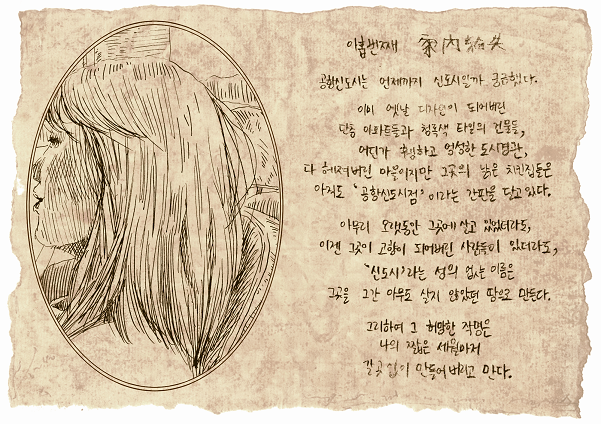 아홉번째 家內紛失
공항신도시는 언제까지 신도시일까 궁금했다.
이미 옛날 디자인이 되어버린
단층 아파트들과 청록색 타일의 건물들,
어딘가 휑하고 엉성한 도시경관,
다 헤져버린 마을이지만 그곳의 낡은 치킨집들은
아직도 '공항신도시점' 이라는 간판을 달고 있다.
아무리 오랫동안 그곳에 살고 있었더라도,
이젠 그곳이 고향이 되어버린 사람들이 있더라도,
'신도시'라는 성의 없는 이름은
그곳을 그간 아무도 살지 않았던 땅으로 만든다.
그리하여 그 허망한 작명은
나의 짧은 세월마저
갈 곳 없이 만들어 버리고 만다.